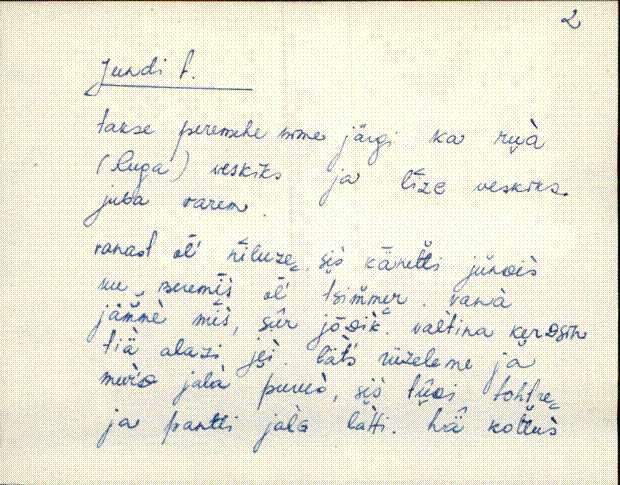 2
Jundi t.
takse peremehe nime järgi ka ruà
(Ruga) veskiks ja lize veskiks
juba varem.
vanast ol' niluze, sis känetti junois
uu peremìs ol' tsimmer. vanà
jämmè mìs, sùr jodik. valtina kerosin
tiä alazi jei. läts rüzeleme ja
murs jalà puruò, sis tuoi tohtre
ja pantti jalg lätti. hä kottus